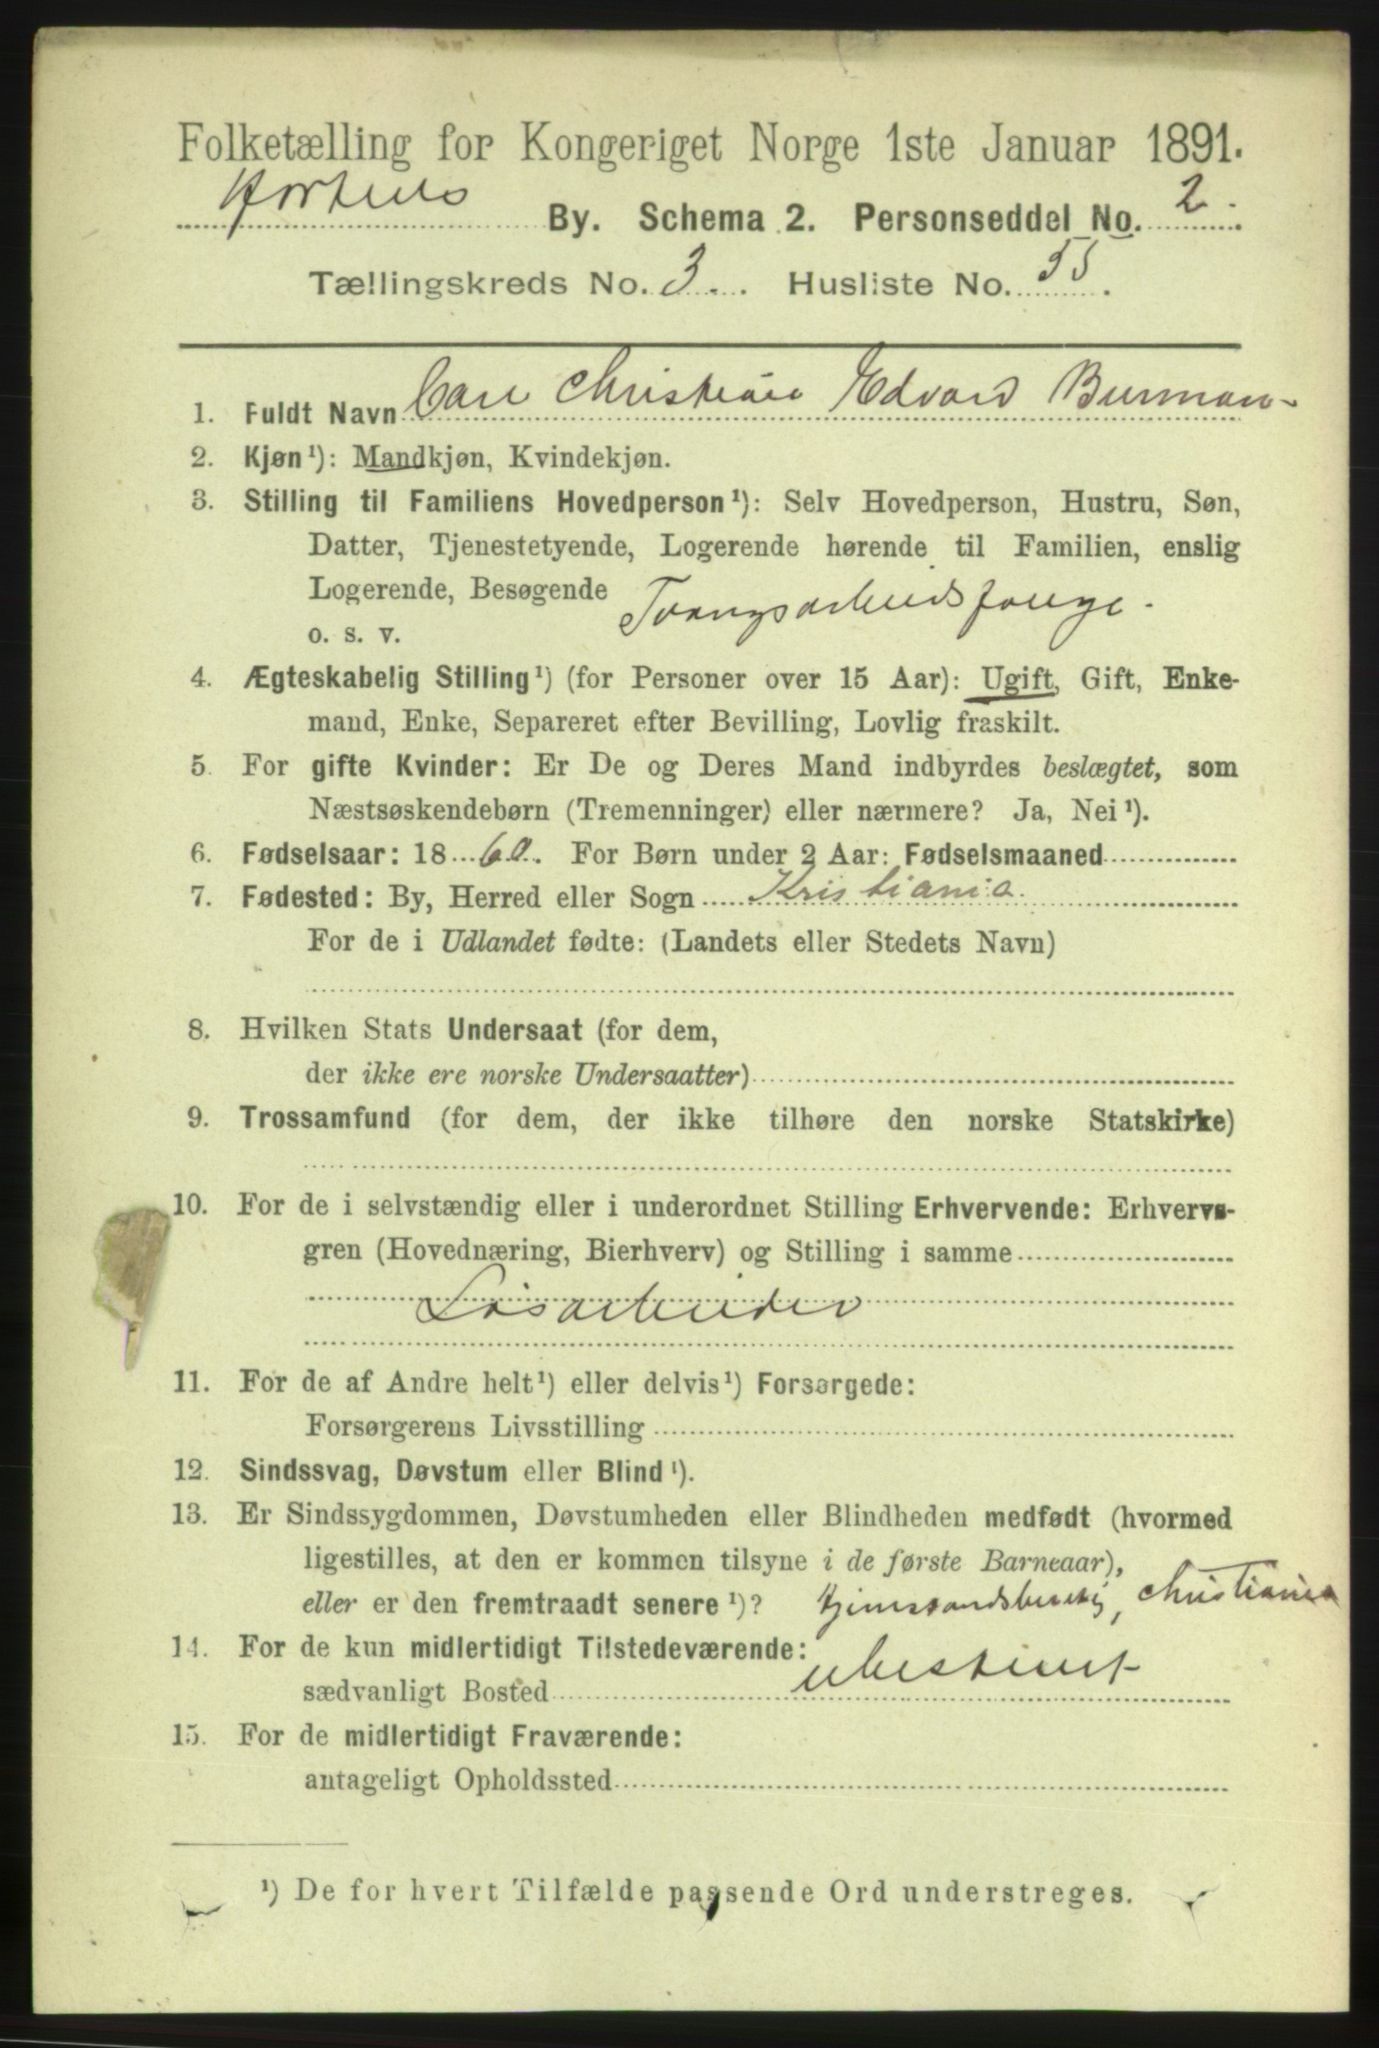 Folketælling for Kongeriget Norge 1ste Januar 1891.
Hortens By. Schema 2. Personseddel No. 2.
Tællingskreds No. 3. Husliste No. 55.
1. Fuldt Navn Carl Christian Edvard Burman
2. Kjøn¹): Mandkjøn, Kvindekjøn.
3. Stilling til Familiens Hovedperson¹): Selv Hovedperson, Hustru, Søn,
Datter, Tjenestetyende, Logerende hørende til Familien, enslig
Logerende, Besøgende Tvangsarbeidsfange.
o. s. v.
4. Ægteskabelig Stilling¹) (for Personer over 15 Aar): Ugift, Gift, Enke-
mand, Enke, Separeret efter Bevilling, Lovlig fraskilt.
5. For gifte Kvinder: Er De og Deres Mand indbyrdes beslægtet, som
Næstsøskendebørn (Tremenninger) eller nærmere? Ja, Nei¹).
6. Fødselsaar: 1860. For Børn under 2 Aar: Fødselsmaaned
7. Fødested: By, Herred eller Sogn Kristiania
For de i Udlandet fødte: (Landets eller Stedets Navn)
8. Hvilken Stats Undersaat (for dem,
der ikke ere norske Undersaatter)
9. Trossamfund (for dem, der ikke tilhøre den norske Statskirke)
10. For de i selvstændig eller i underordnet Stilling Erhvervende: Erhvervs-
gren (Hovednæring, Bierhverv) og Stilling i samme
Løsarbeider
11. For de af Andre helt¹) eller delvis¹) Forsørgede:
Forsørgerens Livsstilling
12. Sindssvag, Døvstum eller Blind¹).
13. Er Sindssygdommen, Døvstumheden eller Blindheden medfødt (hvormed
ligestilles, at den er kommen tilsyne i de første Barneaar),
eller er den fremtraadt senere¹)? Christiania
14. For de kun midlertidigt Tilstedeværende:
sædvanligt Bosted ubestemt
15. For de midlertidigt Fraværende:
antageligt Opholdssted
¹) De for hvert Tilfælde passende Ord understreges.